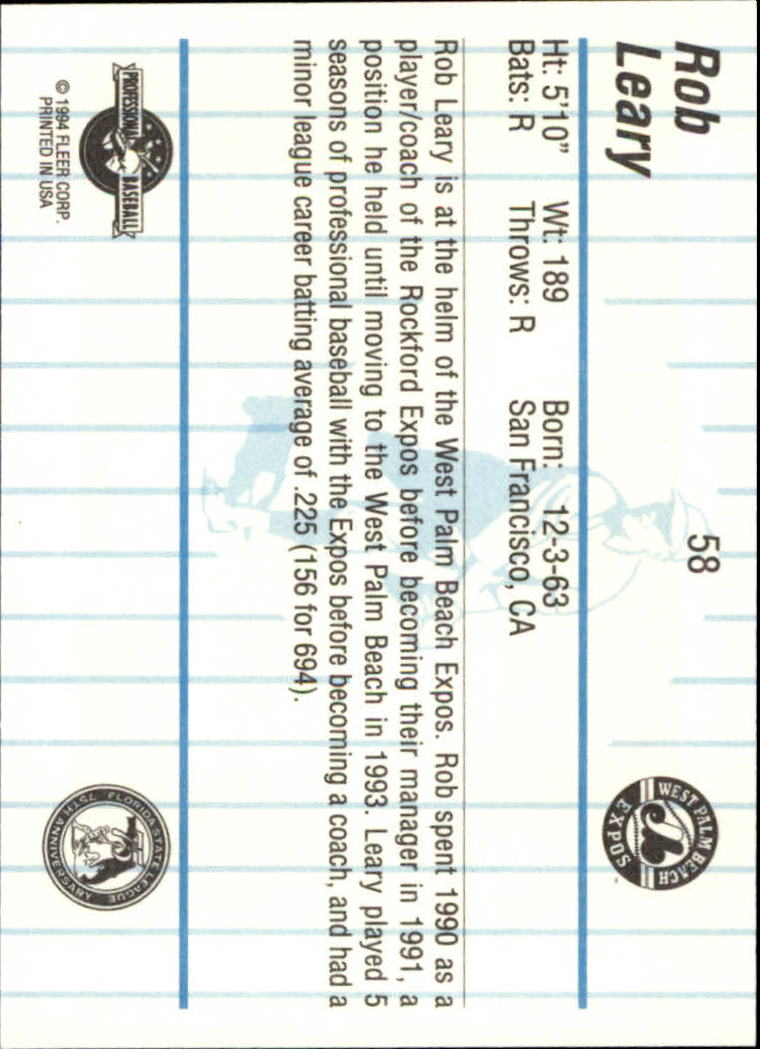 Rob
Leary
58
WEST PALM BEACH
EXPOS
Ht: 5'10" Wt: 189 Born: 12-3-63
Bats: R Throws: R San Francisco, CA
Rob Leary is at the helm of the West Palm Beach Expos. Rob spent 1990 as a
player/coach of the Rockford Expos before becoming their manager in 1991, a
position he held until moving to the West Palm Beach in 1993. Leary played 5
seasons of professional baseball with the Expos before becoming a coach, and had a
minor league career batting average of .225 (156 for 694).
PROFESSIONAL BASEBALL
© 1994 FLEER CORP.
PRINTED IN USA
FLORIDA STATE LEAGUE
75TH ANNIVERSARY